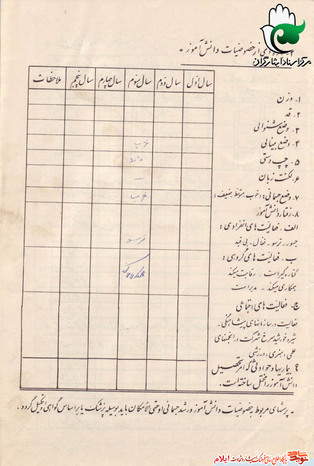 مرکز اسناد ایثارگران
خصوصیات دانش آموز
سال اول
سال دوم
سال سوم
سال چهارم
سال پنجم
ملاحظات
۱- وزن
۲- قد
۳- وضع شنوائی
۴- وضع بینائی
خوب
۵- چپ دستی
ندارد
۶- لکنت زبان
۷- وضع جسمانی: خوب متوسط ضعیف:
خوب
۸- رفتار دانش آموز
الف- فعالیت های انفرادی:
جسور- ترسو- فعال- بی قید
ب- فعالیت های گروهی:
کناره گیر است- رقابت میکند
همکاری میکند- مدیر است
ج- فعالیت های اجتماعی
فعالیت در سازمانهای پیشاهنگی،
شیر و خورشید سرخ شرکت در انجمنهای
علمی، هنری، ورزشی
۹- بیماریها و حوادثی که امر تحصیل
دانش آموز را مختل ساخته است.
- پرسشهای مربوط بخصوصیات دانش آموز و رشد جسمانی او حتی الامکان باید بوسیله پزشک یا براساس گواهی او تکمیل گردد.